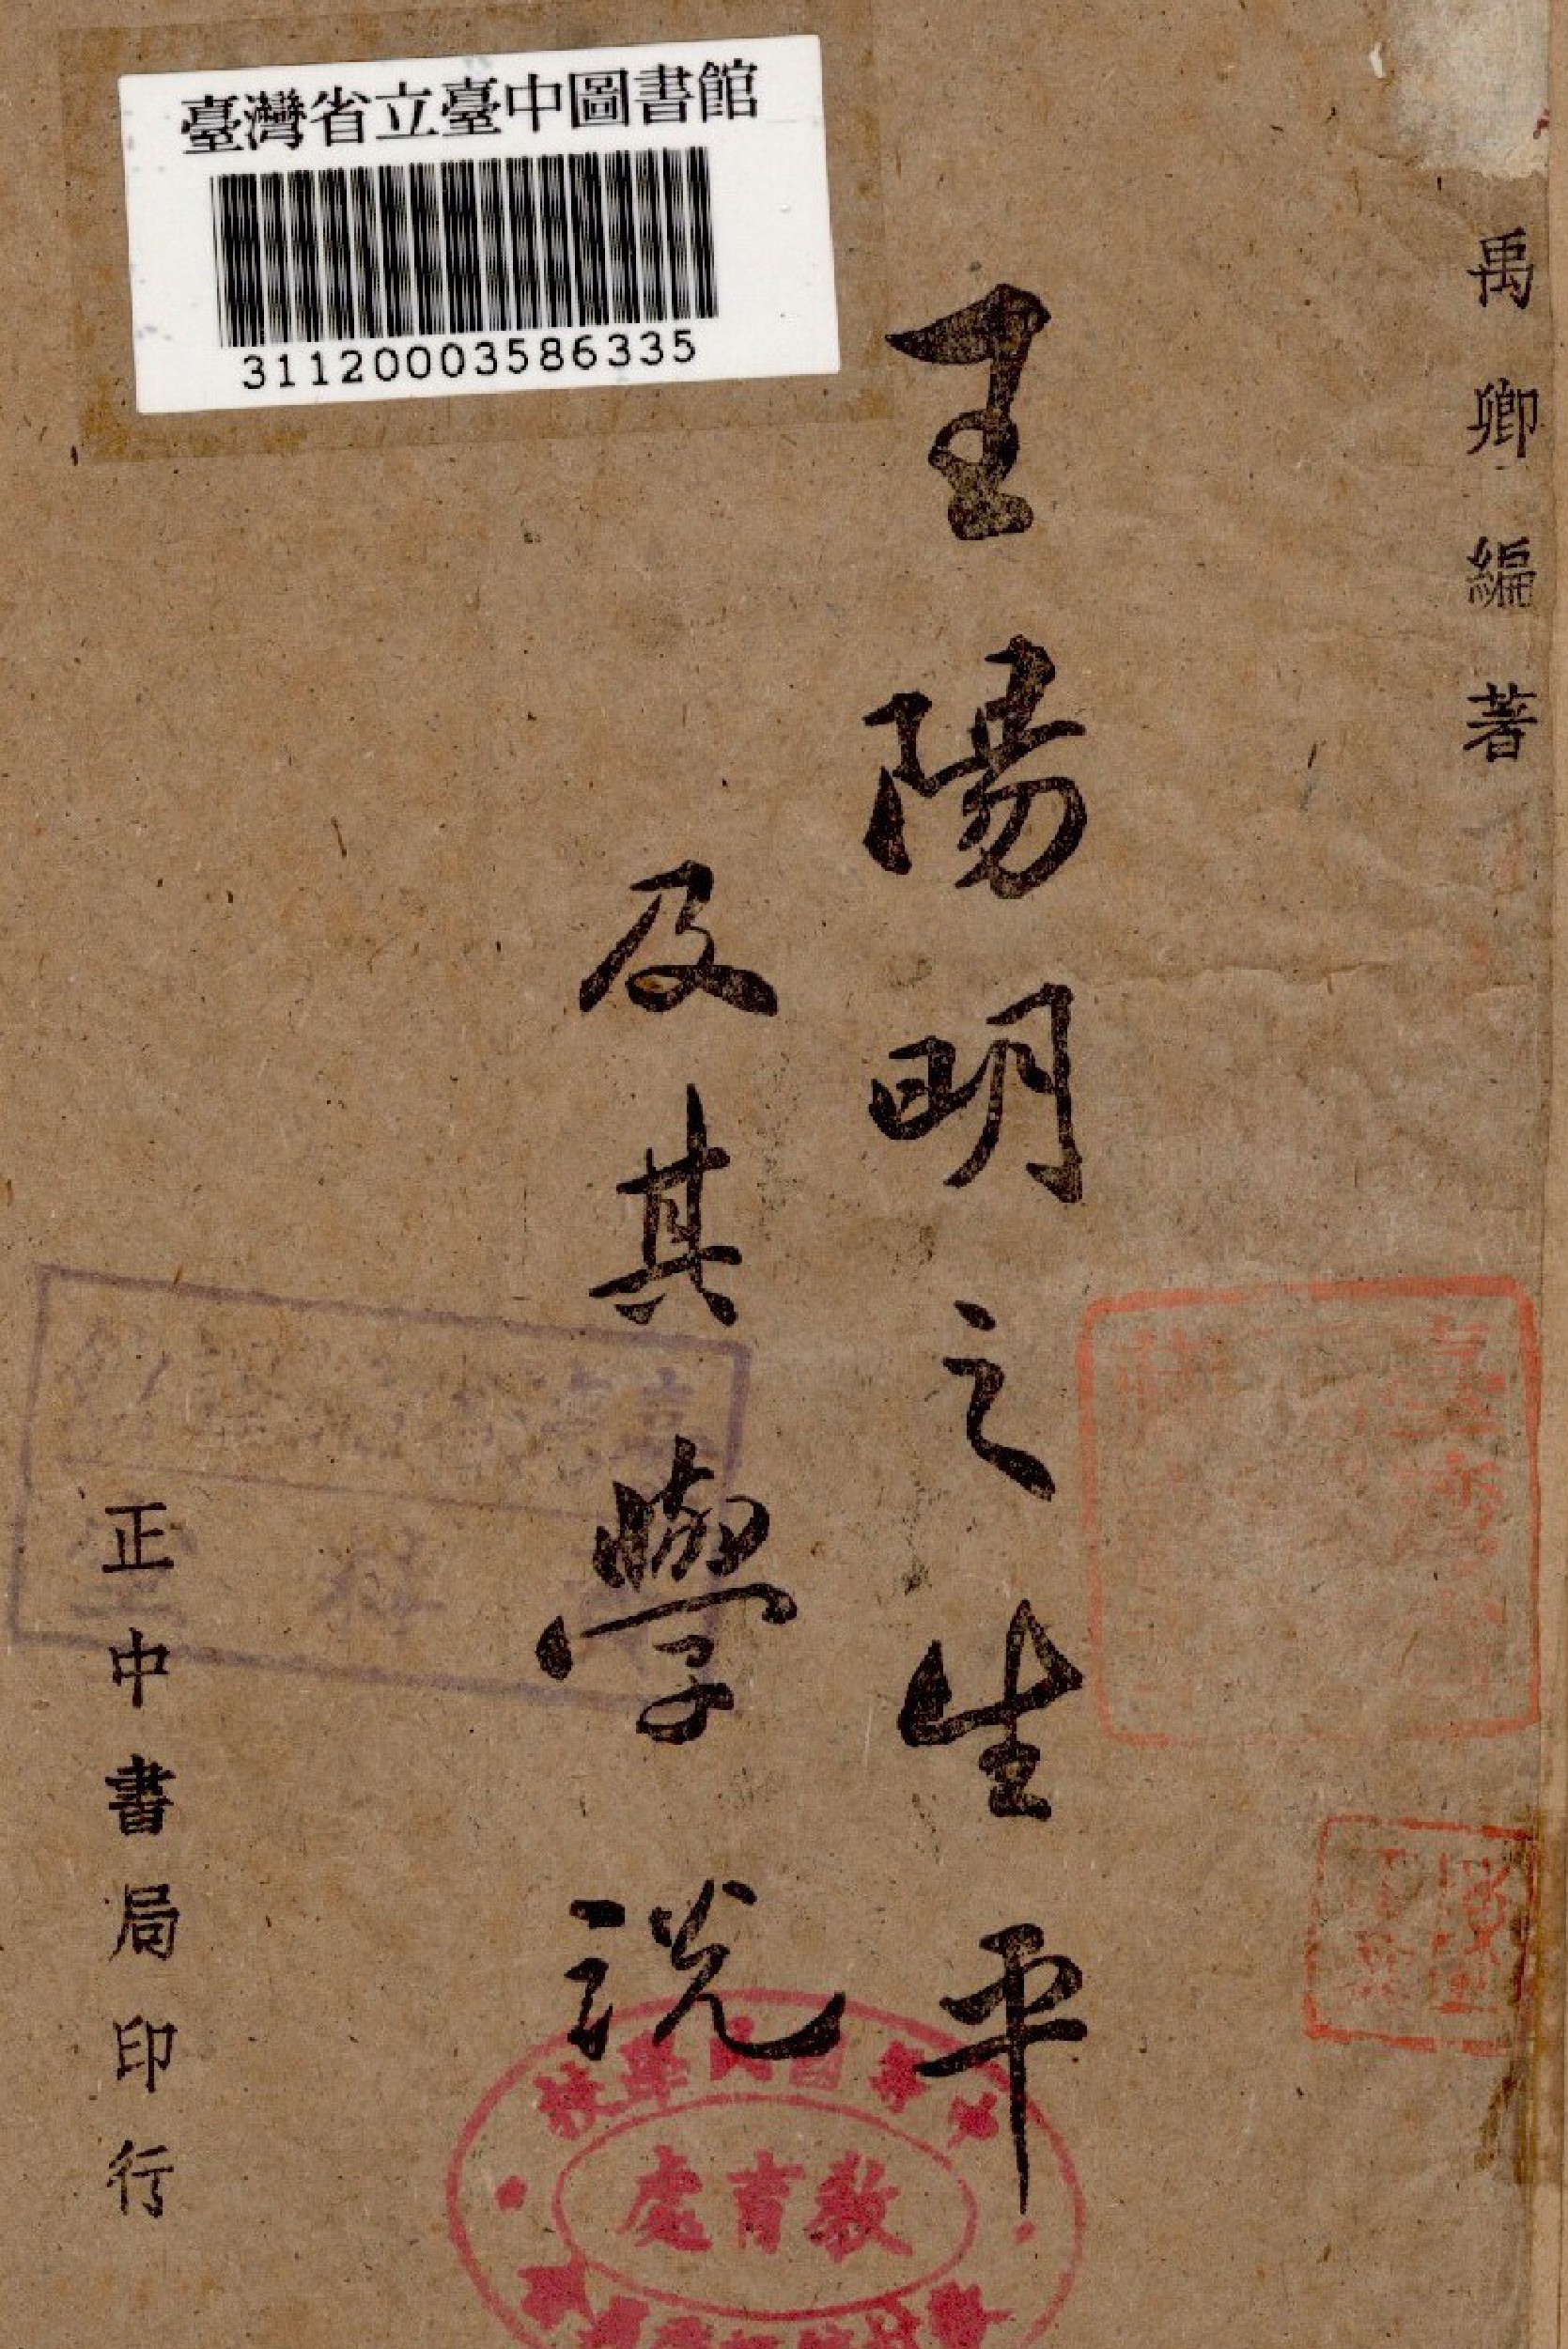 臺灣省立臺中圖書館
31120003586335
禹卿編著
王陽明之生平
及其學說
正中書局印行
教育處